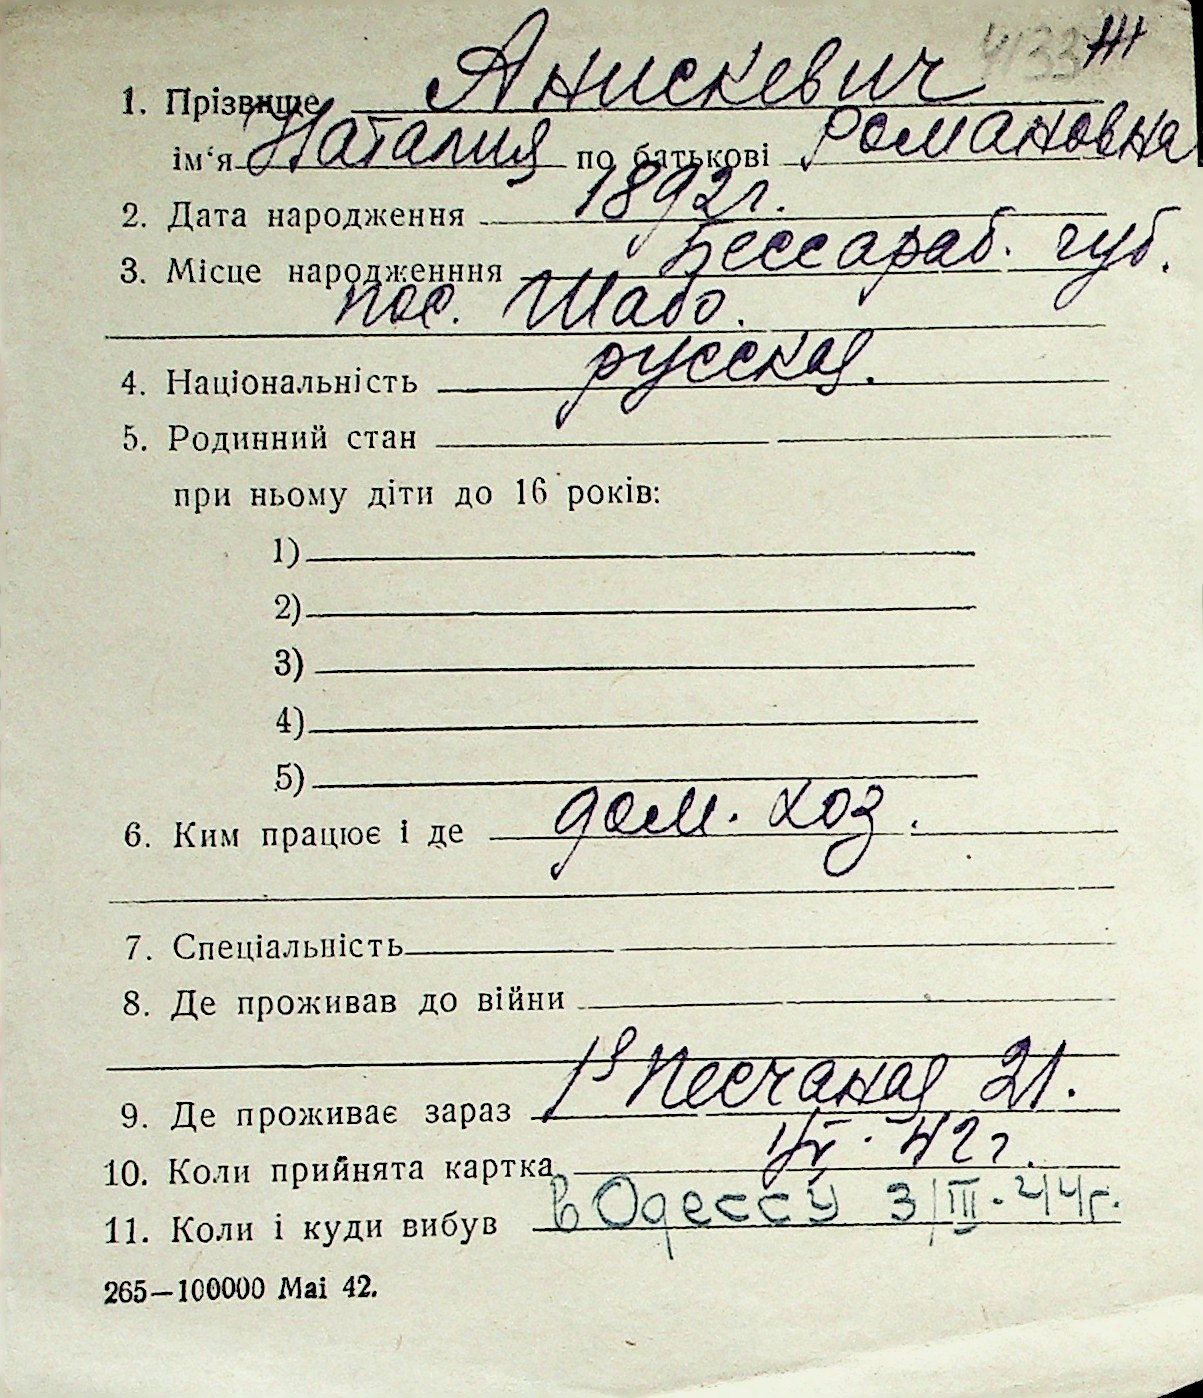 4133 Ж
1. Прізвище Анискевич
ім‘я Наталия по батькові Романовна
2. Дата народження 1892г.
3. Місце народженння Бессараб. губ.
пос. Шабо.
4. Національність русская.
5. Родинний стан
при ньому діти до 16 років:
1)
2)
3)
4)
5)
6. Ким працює і де дом. хоз.
7. Спеціальність
8. Де проживав до війни
9. Де проживає зараз 1я Песчаная 21.
10. Коли прийнята картка 42 г.
11. Коли і куди вибув в Одессу 3/III-44г.
265—100000 Маі 42.